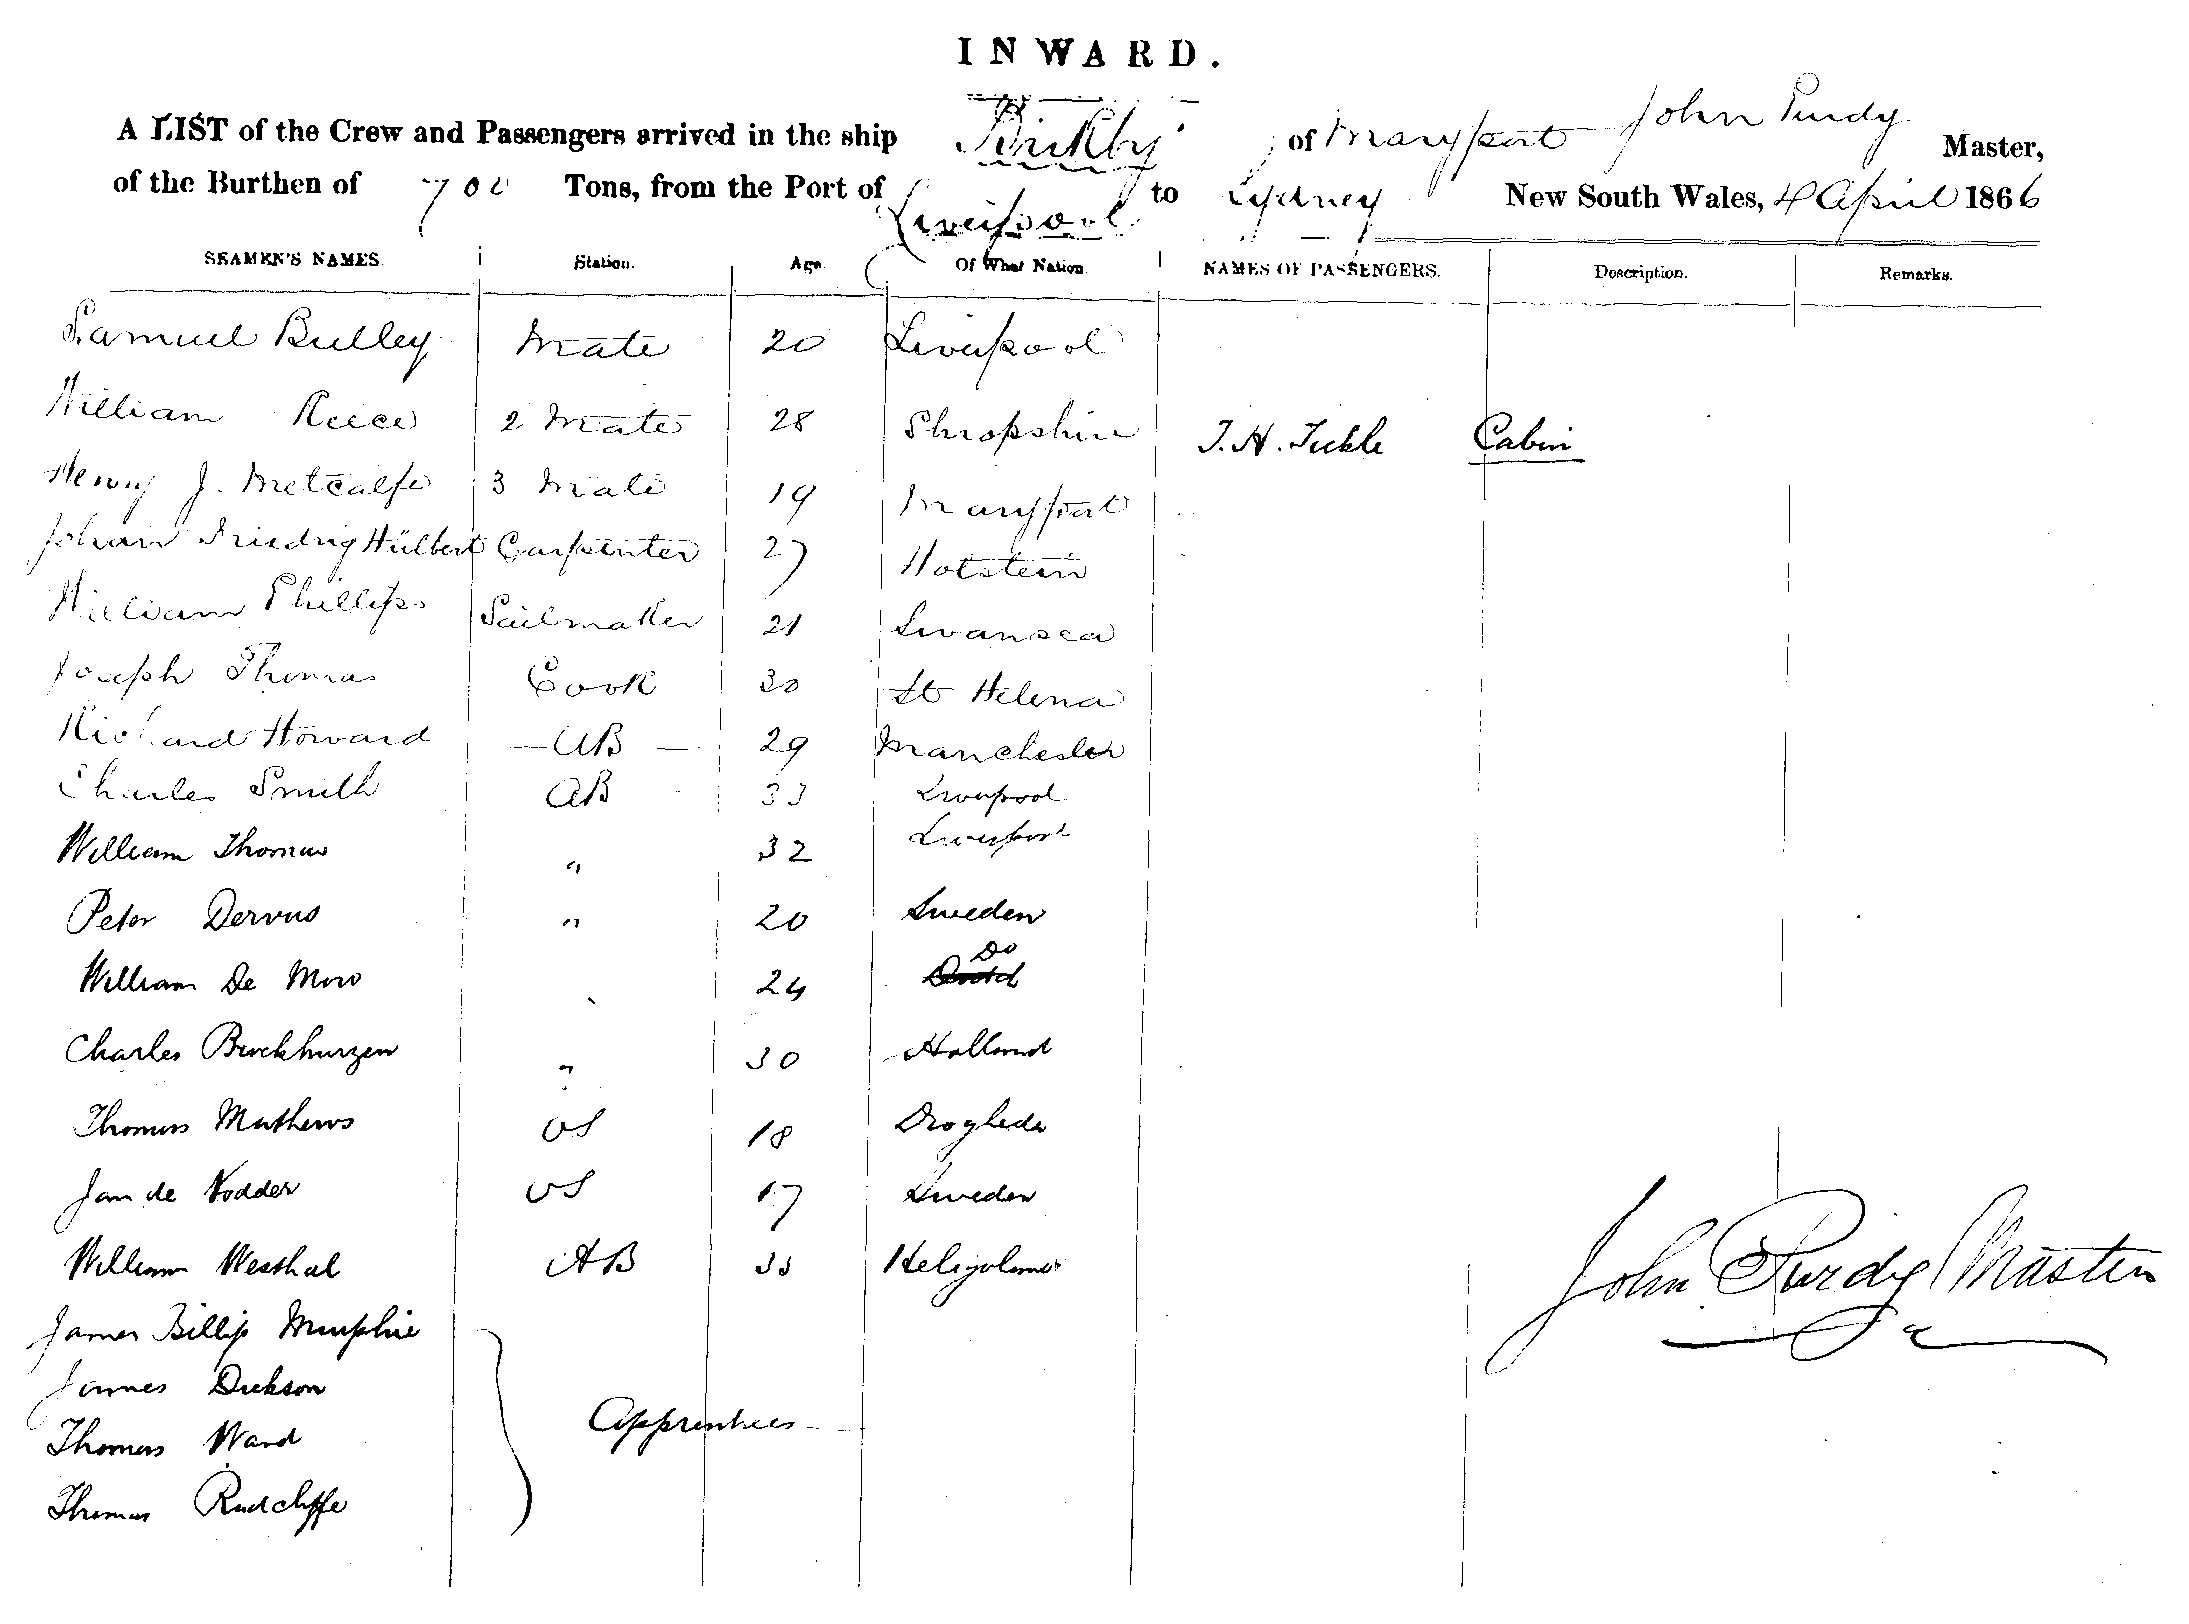 INWARD.
A LIST of the Crew and Passengers arrived in the ship Birkby of Maryport John Purdy Master,
of the Burthen of 700 Tons, from the Port of Liverpool to Sydney New South Wales, 4 April 1866
SEAMEN'S NAMES. Station. Age. Of What Nation. NAMES OF PASSENGERS. Description. Remarks.
Samuel Bulley Mate 20 Liverpool
William Reece 2 Mate 28 Shropshire J. H. Tickle Cabin
Henry J. Metcalfe 3 Mate 19 Maryport
Johan Friedrig Hülbert Carpenter 27 Holstein
William Phillips Sailmaker 21 Swansea
Joseph Thomas Cook 30 St Helena
Richard Howard — AB — 29 Manchester
Charles Smith AB 33 Liverpool
William Thomas " 32 Liverpool
Peter Dervus " 20 Sweden
William De Mow " 24 Do
Charles Brockhurzen " 30 Holland
Thomas Mathews OS 18 Drogheda
Jan de Vodder OS 17 Sweden
William Westhal AB 33 Heligoland
James Billip Murphie
James Dickson
Apprentices
Thomas Ward
Thomas Radcliffe
John Purdy Master